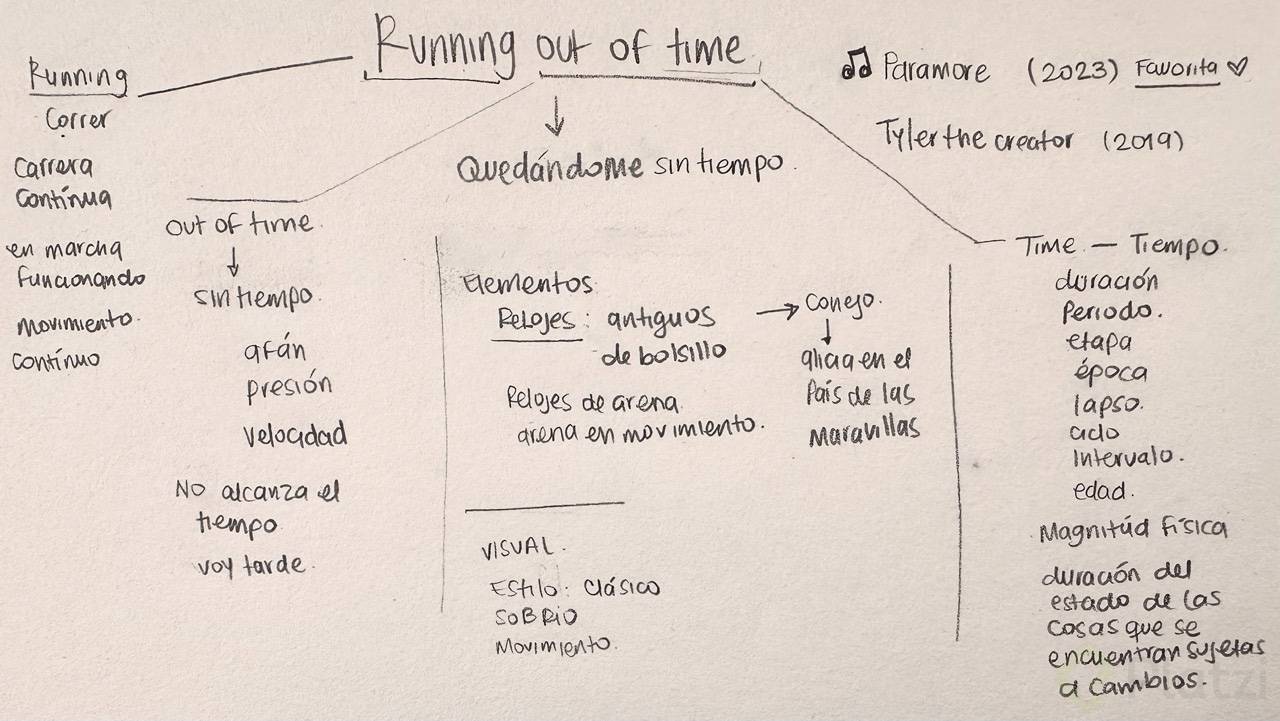 Running out of time
♫ Paramore (2023) Favorita ♡
Tyler the creator (2019)
Quedándome sin tiempo.
Running
Correr
Carrera
Contínua
en marcha
funcionando
movimiento.
contínuo
out of time.
sin tiempo.
afán
presión
velocidad
No alcanza el
tiempo
voy tarde.
Elementos
Relojes: antiguos
de bolsillo
Relojes de arena.
arena en movimiento.
→ Conejo.
alicia en el
País de las
Maravillas
VISUAL.
Estilo: Clásico
SOBRIO
Movimiento.
Time — Tiempo.
duración
Periodo.
etapa
época
lapso.
ciclo
Intervalo.
edad.
Magnitúd física
duración del
estado de las
cosas que se
encuentran sujetas
a cambios.
Platzi